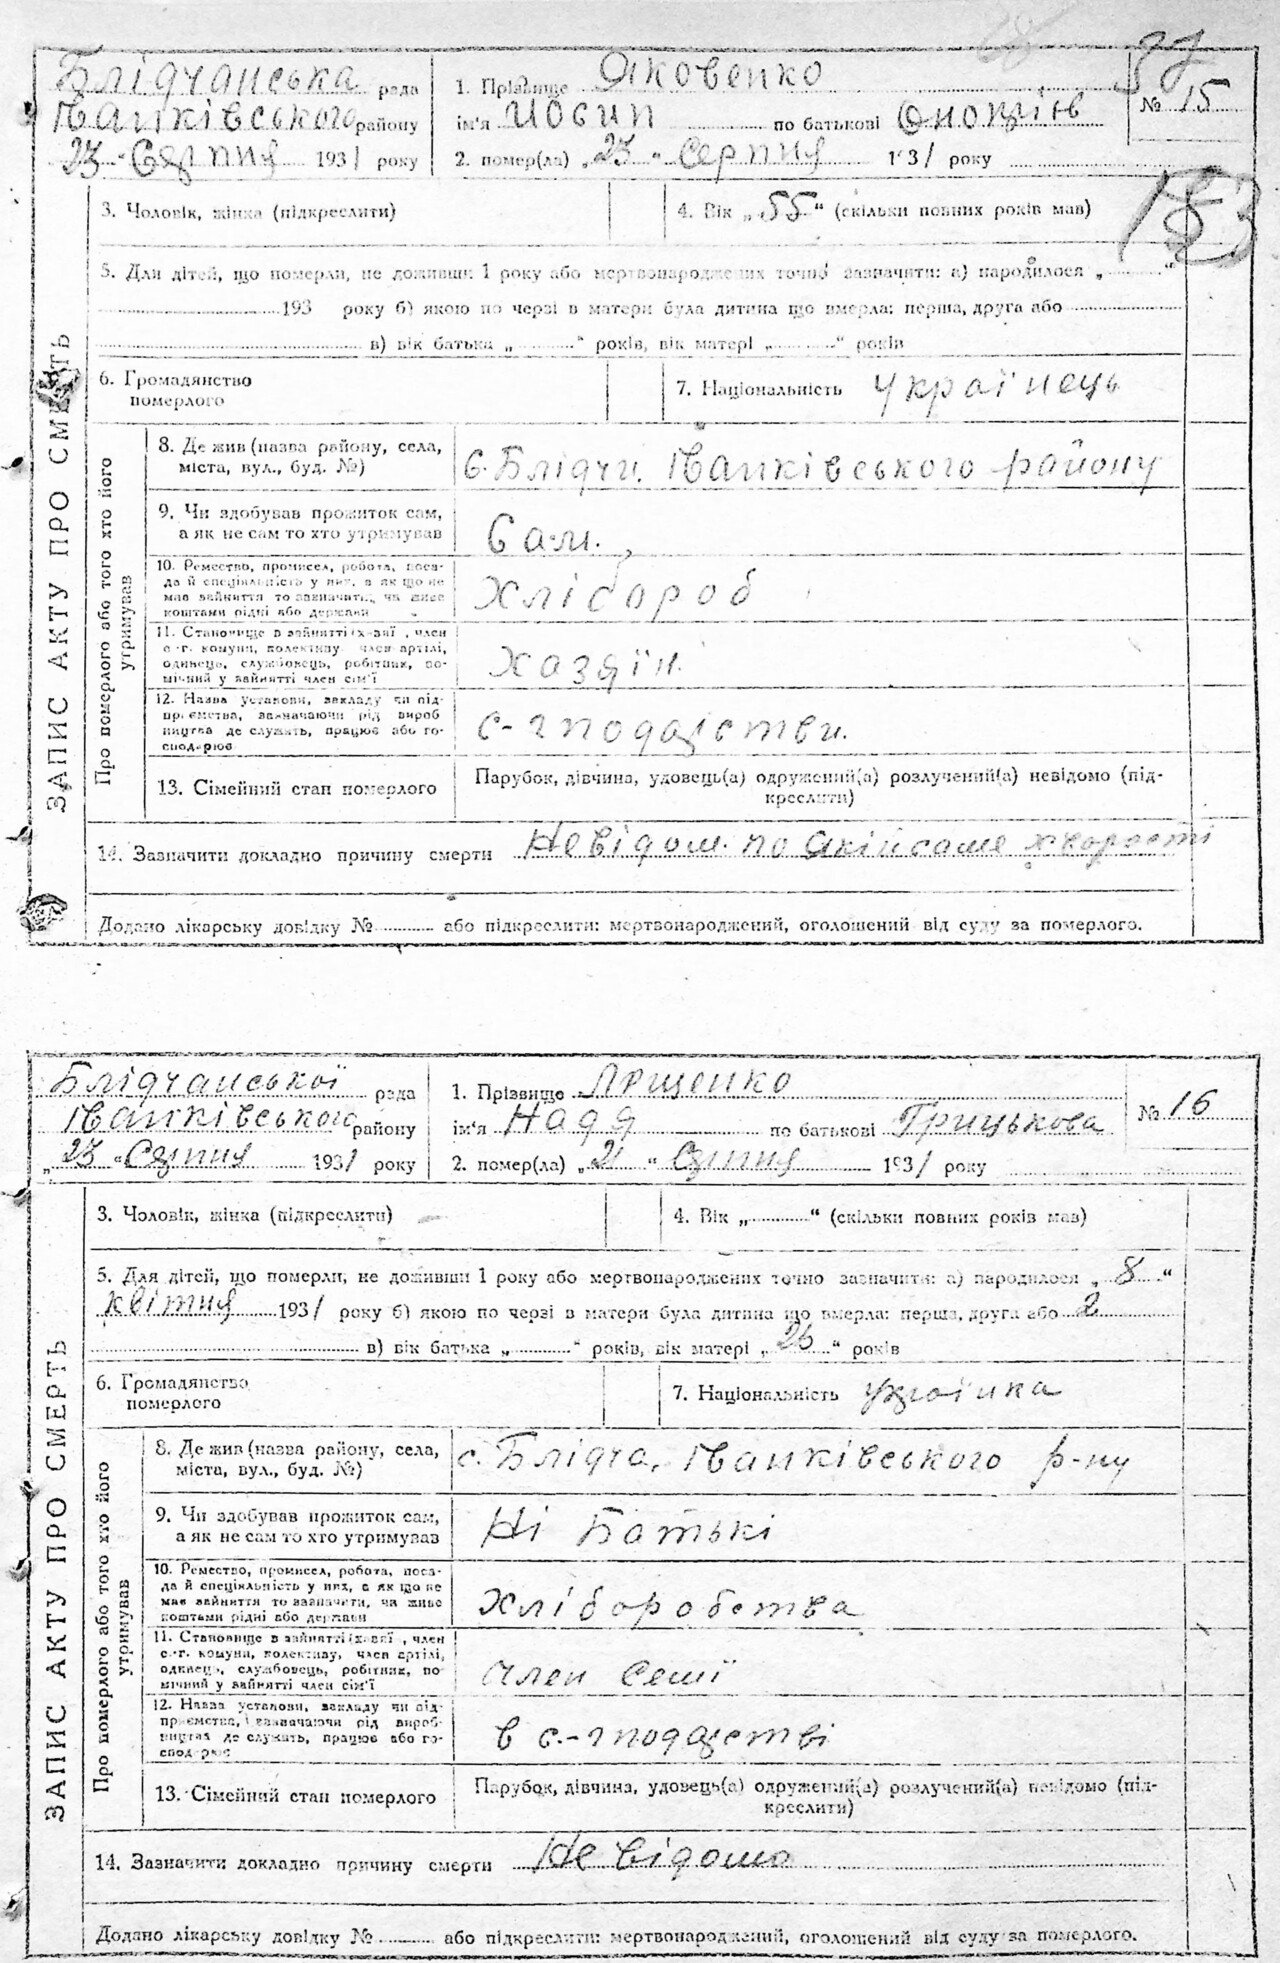 37
Блідчанська рада
Іванківського району
23 „ Серпня 1931 року
1. Прізвище Яковенко
ім'я Йосип по батькові
2. помер(ла) „ 23 „ Серпня 1931 року
№ 15
3. Чоловік, жінка (підкреслити)
4. Вік „ 55 “ (скільки повних років мав)
153
5. Для дітей, що померли, не доживши 1 року або мертвонароджених точно зазначити: а) народилося „ “
193 року б) якою по черзі в матери була дитина що вмерла: перша, друга або
в) вік батька „ “ років, вік матері „ “ років
6. Громадянство
померлого
7. Національність українець
ЗАПИС АКТУ ПРО СМЕРТЬ
Про померлого або того хто його
утримував
8. Де жив (назва району, села,
міста, вул., буд. №)
с. Блідчи, Іванківського району
9. Чи здобував прожиток сам,
а як не сам то хто утримував
Сам.
10. Ремество, промисел, робота, поса-
да й спеціяльність у них, а як що не
мав зайняття то зазначити, чи живе
коштами рідні або держави
Хлібороб
11. Становище в зайнятті (х-зяї, член
с.-г. комуни, колективу, член артілі,
одинець, службовець, робітник, по-
мічний у зайнятті член сім'ї
Хазяїн.
12. Назва установи, закладу чи під-
приємства, зазначаючи рід вироб
ництва де служить, працює або го-
сподарює
с-господарстви.
13. Сімейний стан померлого
Парубок, дівчина, удовець(а) одружений(а) розлучений(а) невідомо (під-
креслити)
14. Зазначити докладно причину смерти Невідом. по якій саме хворості
Додано лікарську довідку № або підкреслити: мертвонароджений, оголошений від суду за померлого.
Блідчанської рада
Іванківського району
„ 23 “ Серпня 1931 року
1. Прізвище Ярщенко
ім'я Надя по батькові Грицькова
2. помер(ла) „ 21 “ Серпня 1931 року
№ 16
3. Чоловік, жінка (підкреслити)
4. Вік „ “ (скільки повних років мав)
5. Для дітей, що померли, не доживши 1 року або мертвонароджених точно зазначити: а) народилося „ 8 “
квітня 1931 року б) якою по черзі в матери була дитина що вмерла: перша, друга або 2
в) вік батька „ “ років, вік матері „ 26 “ років
6. Громадянство
померлого
7. Національність українка
ЗАПИС АКТУ ПРО СМЕРТЬ
Про померлого або того хто його
утримував
8. Де жив (назва району, села,
міста, вул., буд. №)
с. Блідча, Іванківського р-ну
9. Чи здобував прожиток сам,
а як не сам то хто утримував
Ні Батькі
10. Ремество, промисел, робота, поса-
да й спеціяльність у них, а як що не
має зайняття то зазначити, чи живе
коштами рідні або держави
Хліборобства
11. Становище в зайнятті (х-зяї, член
с.-г. комуни, колективу, член артілі,
одинець, службовець, робітник, по-
мічний у зайнятті член сім'ї
член семї
12. Назва установи, закладу чи під-
приємства, зазначаючи рід вироб-
ництва де служить, працює або го-
сподарює
в с.-господарстві
13. Сімейний стан померлого
Парубок, дівчина, удовець(а) одружений(а) розлучений(а) невідомо (під-
креслити)
14. Зазначити докладно причину смерти Не відомо
Додано лікарську довідку № або підкреслити: мертвонароджений, оголошений від суду за померлого.